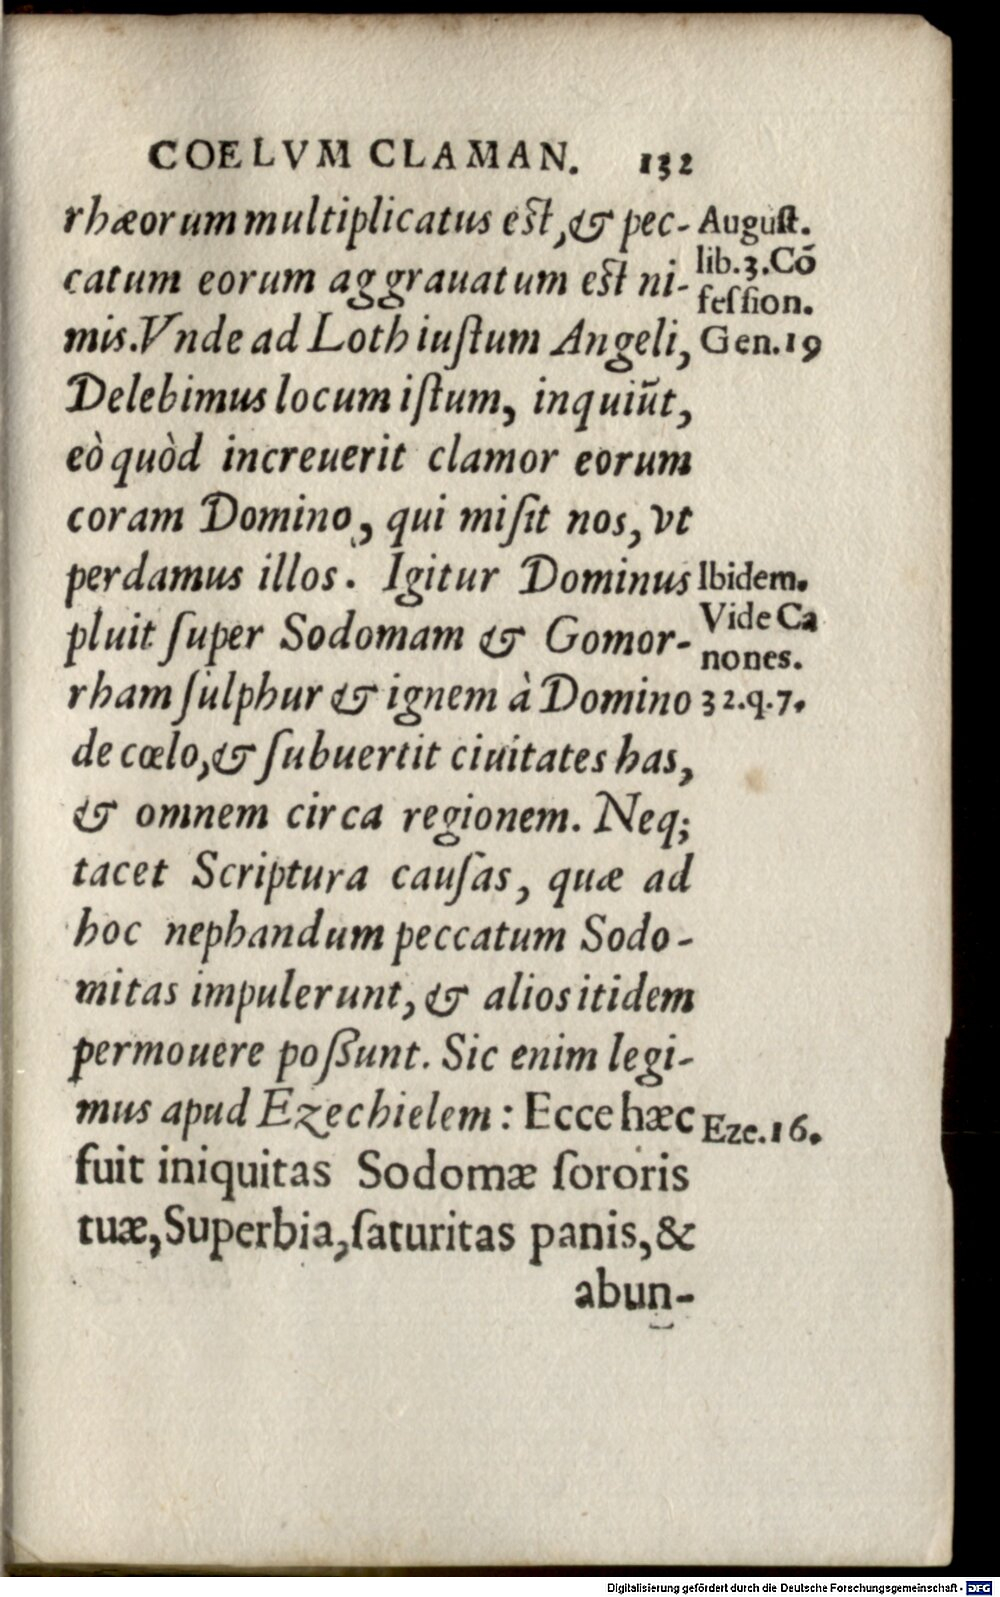 COELVM CLAMAN. 132
rhæorum multiplicatus est, & pec-
catum eorum aggrauatum est ni-
mis. Vnde ad Loth iuſtum Angeli,
Delebimus locum iſtum, inquiūt,
eò quòd increuerit clamor eorum
coram Domino, qui miſit nos, vt
perdamus illos. Igitur Dominus
pluit ſuper Sodomam & Gomor-
rham ſulphur & ignem à Domino
de cœlo, & ſubuertit ciuitates has,
& omnem circa regionem. Neq;
tacet Scriptura cauſas, quæ ad
hoc nephandum peccatum Sodo-
mitas impulerunt, & alios itidem
permouere poßunt. Sic enim legi-
mus apud Ezechielem: Ecce hæc
fuit iniquitas Sodomæ ſororis
tuæ, Superbia, ſaturitas panis, &
abun-
Auguſt.
lib.3.Cō
feſſion.
Gen.19
Ibidem.
Vide Ca
nones.
32.q.7.
Eze.16.
Digitalisierung gefördert durch die Deutsche Forschungsgemeinschaft - DFG